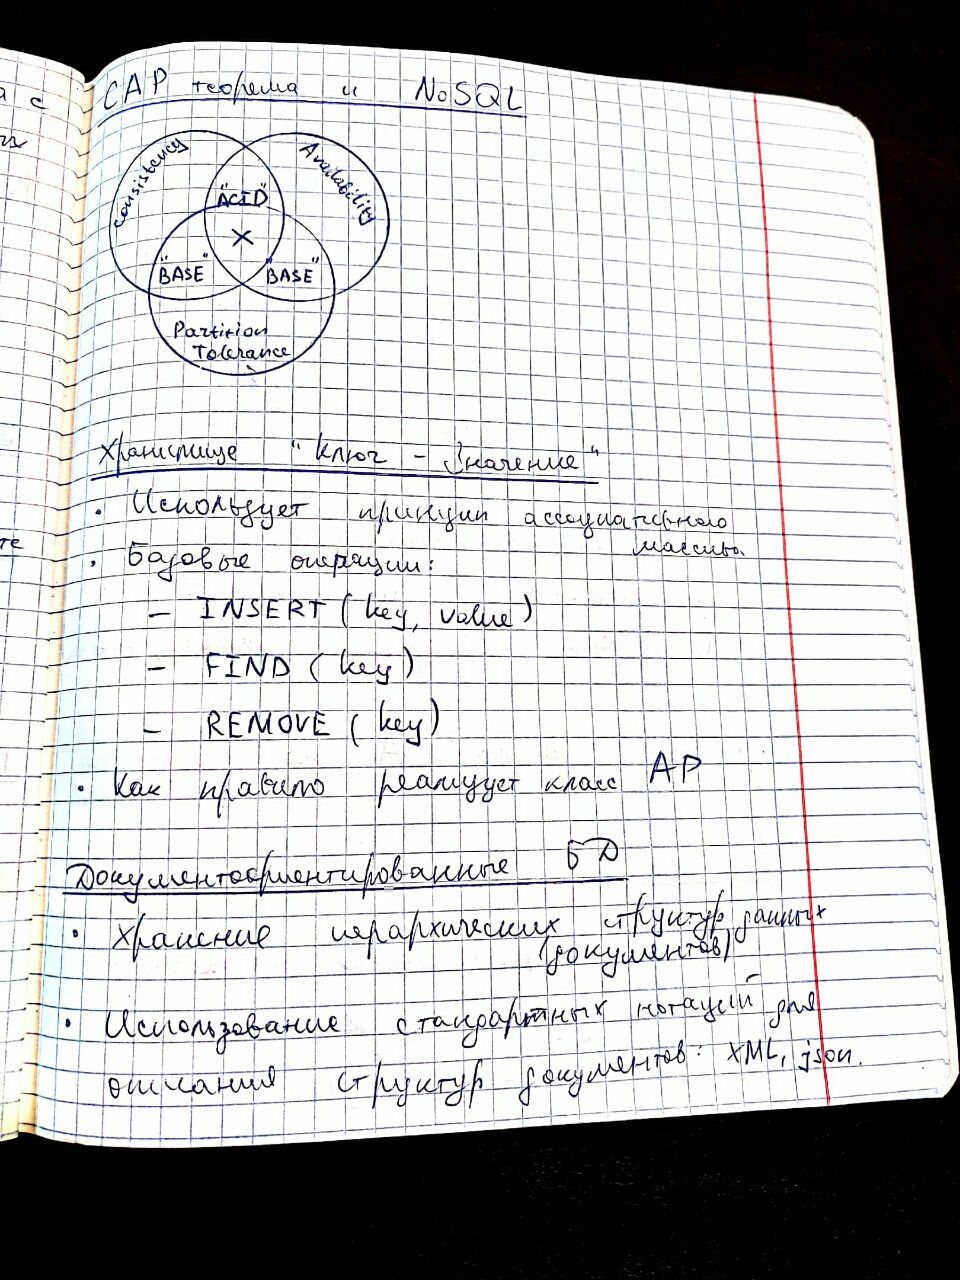 CAP теорема и NoSQL
Consistency
Availability
"ACID"
"BASE"
"BASE"
Partition
Tolerance
Хранилище "Ключ - Значение"
• Использует принцип ассоциативного
массива.
• Базовые операции:
- INSERT (key, value)
- FIND (key)
- REMOVE (key)
• Как правило реализует класс AP
Документоориентированные БД
• Хранение иерархических структур данных
(документов)
• Использование стандартных нотаций для
описания структур документов: XML, json.